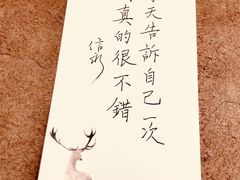 天告訴自己一次
真的很不錯